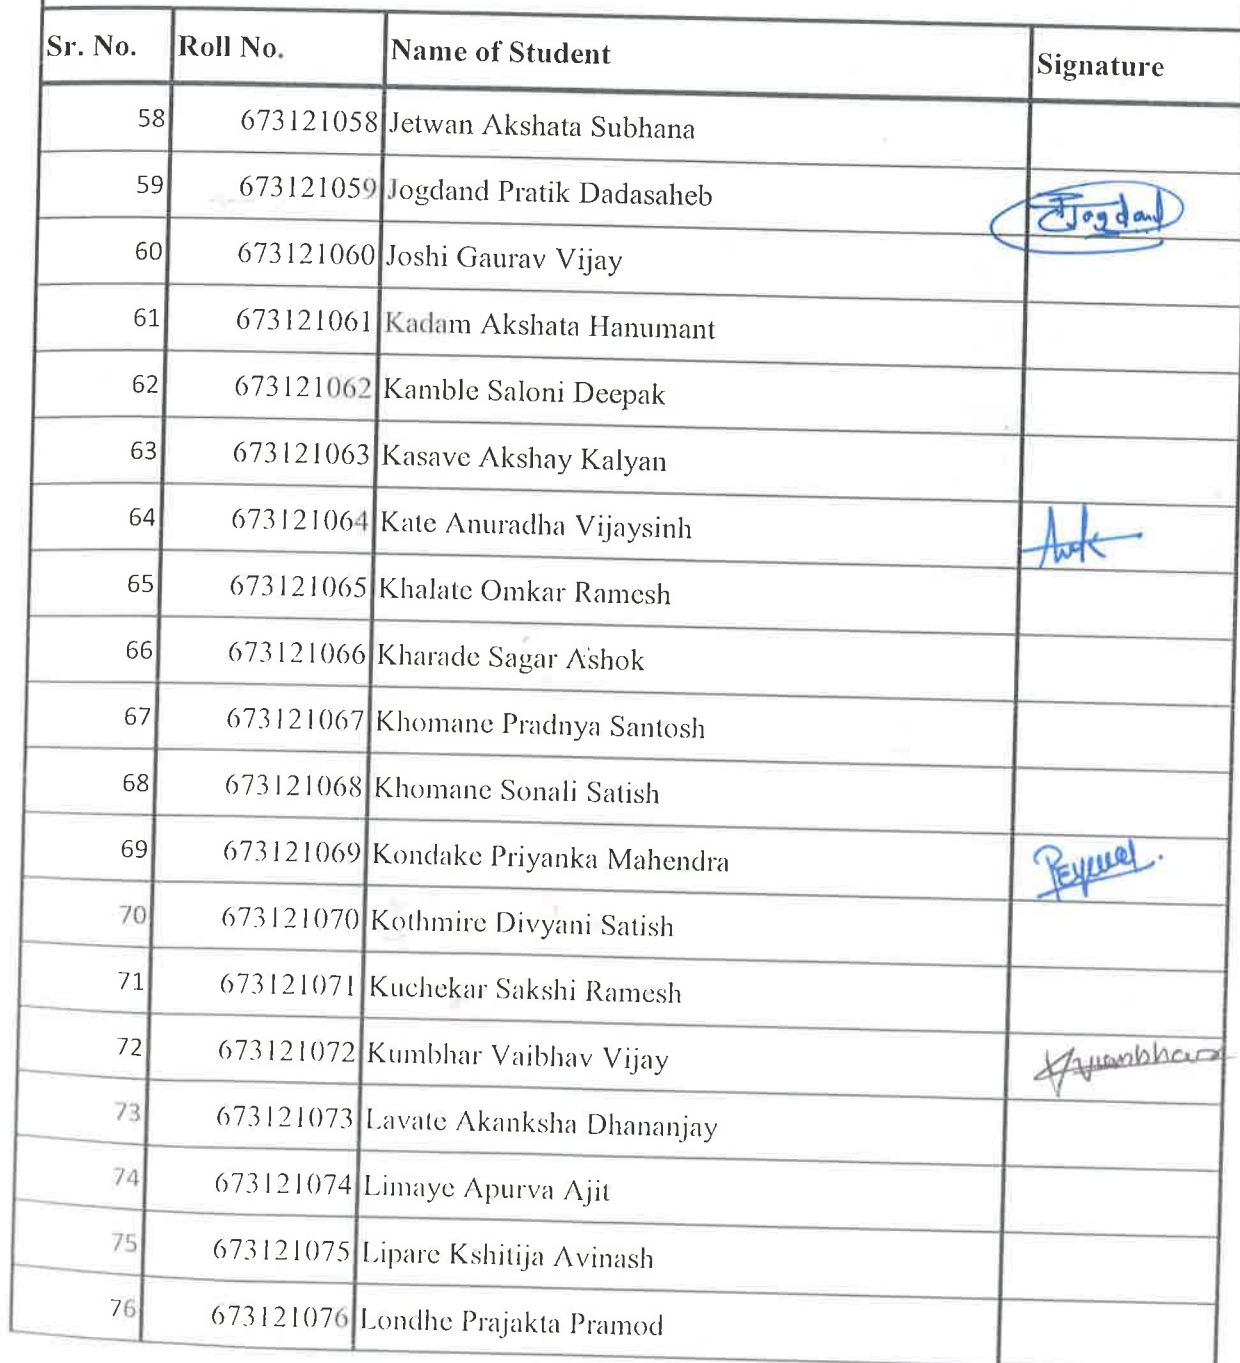 Sr. No. Roll No. Name of Student Signature
58 673121058 Jetwan Akshata Subhana
59 673121059 Jogdand Pratik Dadasaheb Jogdand
60 673121060 Joshi Gaurav Vijay
61 673121061 Kadam Akshata Hanumant
62 673121062 Kamble Saloni Deepak
63 673121063 Kasave Akshay Kalyan
64 673121064 Kate Anuradha Vijaysinh
65 673121065 Khalate Omkar Ramesh
66 673121066 Kharade Sagar Ashok
67 673121067 Khomane Pradnya Santosh
68 673121068 Khomane Sonali Satish
69 673121069 Kondake Priyanka Mahendra
70 673121070 Kothmire Divyani Satish
71 673121071 Kuchekar Sakshi Ramesh
72 673121072 Kumbhar Vaibhav Vijay
73 673121073 Lavate Akanksha Dhananjay
74 673121074 Limaye Apurva Ajit
75 673121075 Lipare Kshitija Avinash
76 673121076 Londhe Prajakta Pramod